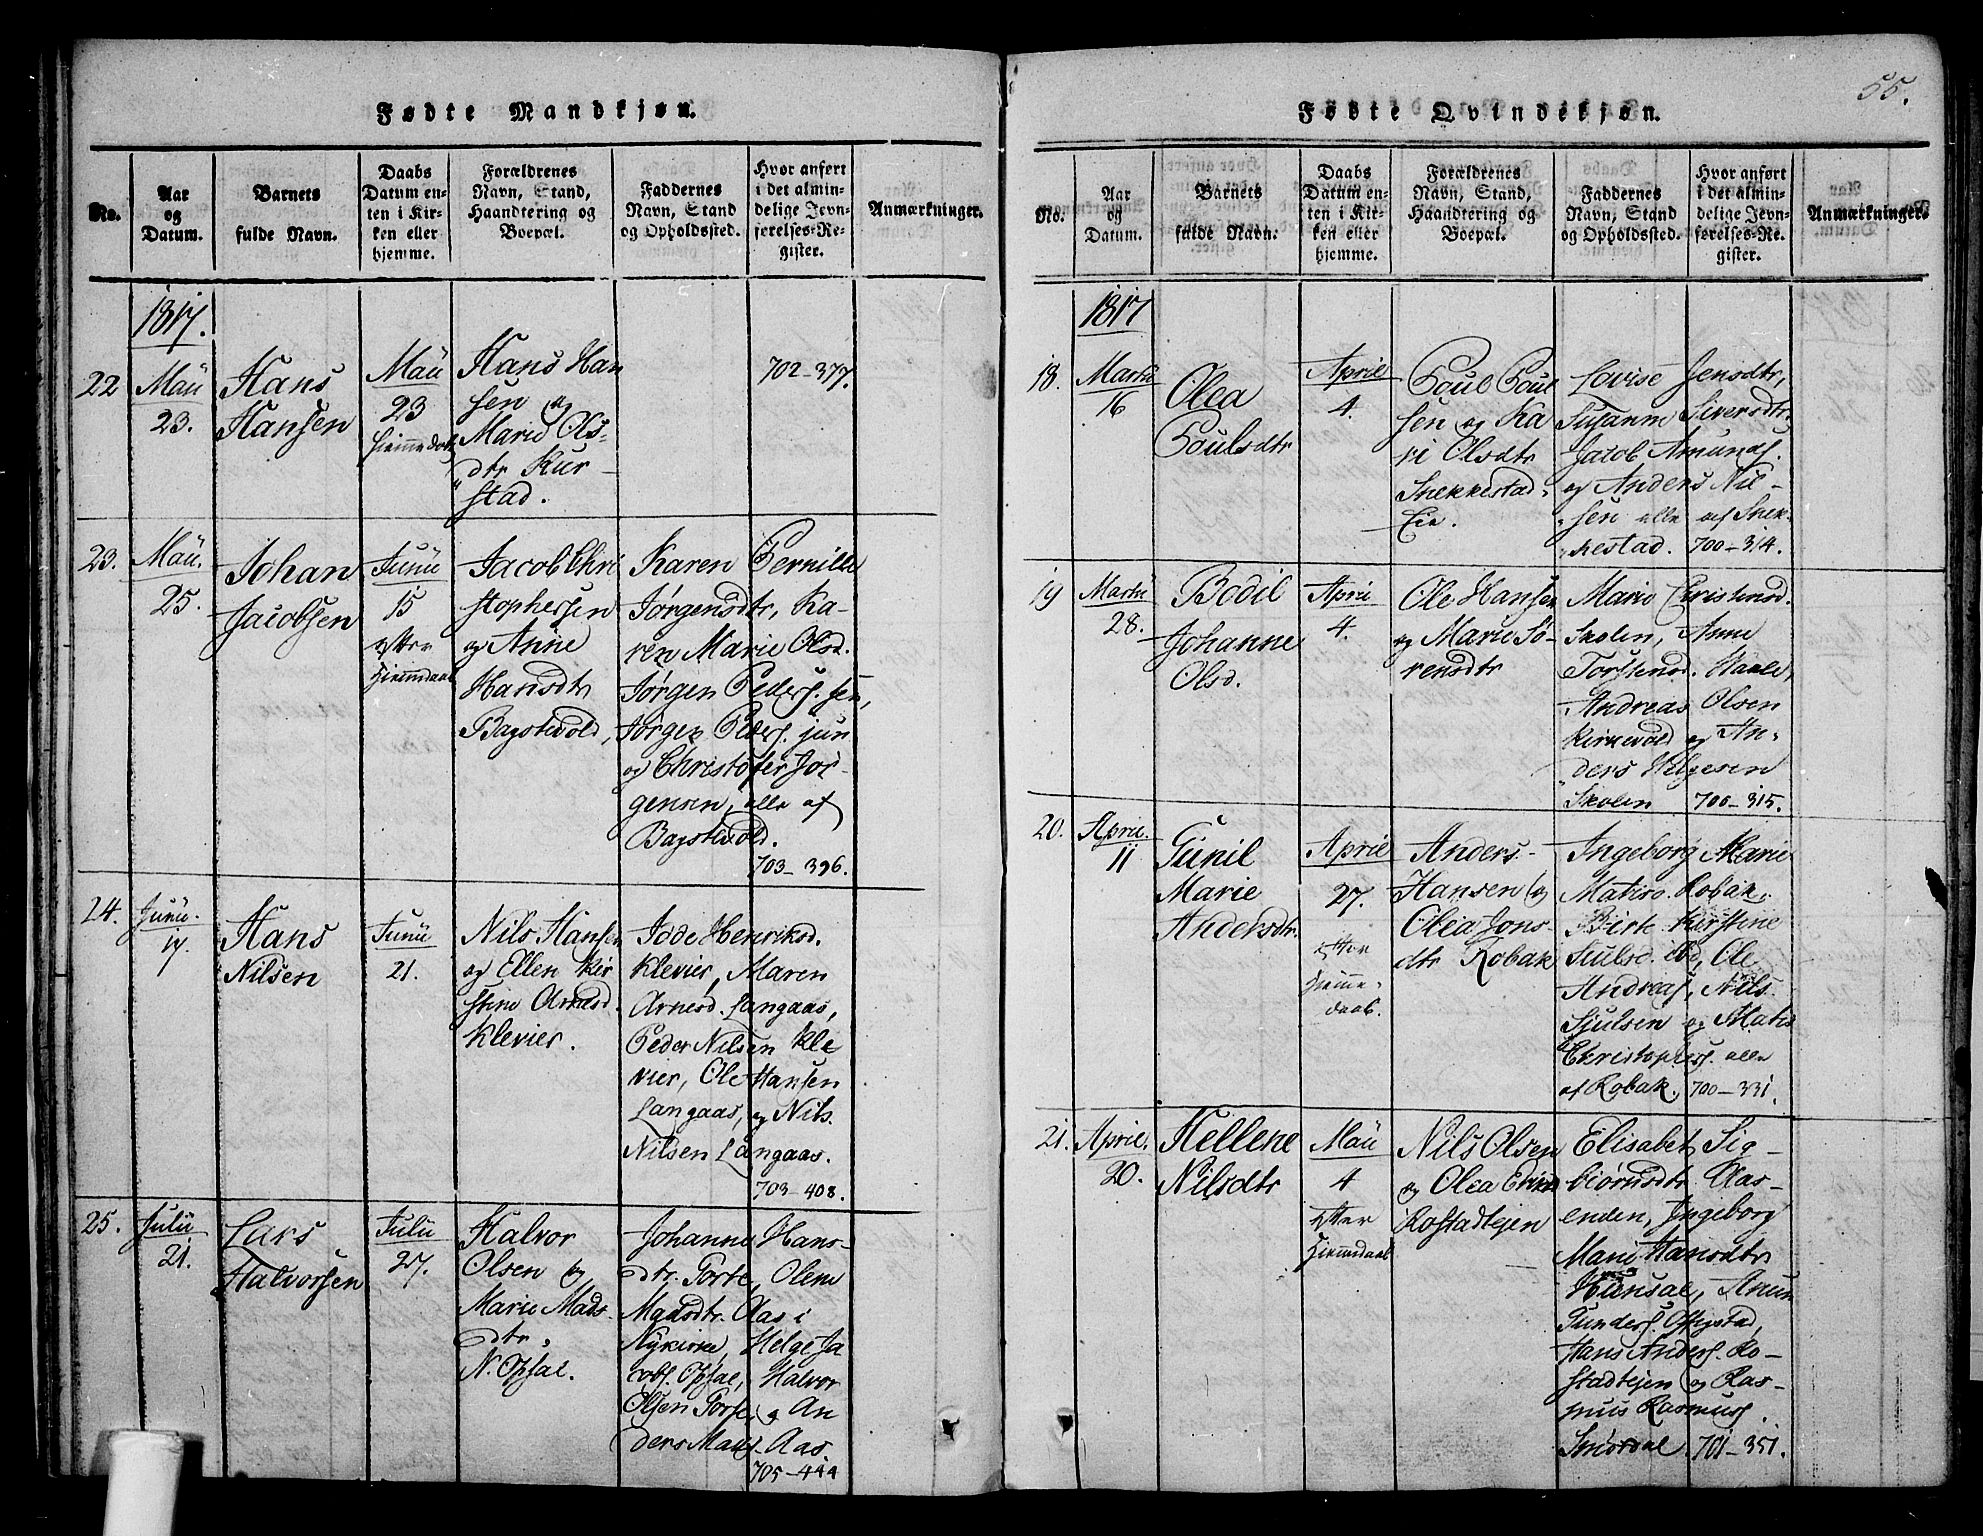 Fødte Mandkjøn.
No.
Aar
og
Datum.
Barnets
fulde Navn.
Daabs
Datum en-
ten i Kir-
ken eller
hjemme.
Forældrenes
Navn, Stand,
Haandtering og
Boepæl.
Faddernes
Navn, Stand
og Opholdssted.
Hvor anført
i det almin-
delige Jevn-
førelses-Re-
gister.
Anmærkninger.
1817.
22
Mäü
23.
Hans
Hansen
Mäü
23
Hans Han
sen og
Marie Ols-
dtr Kur-
stad.
702-377.
23.
Mäü.
25.
Johan
Jacobsen
Junü
15
efter
Hiemdaab
Jacob Chri
stophersen
og Anne
Hansdtr
Bagstevold,
Karen Pernille
Jørgensdtr, Ka-
ren Marie Olsd.
Jørgen Peders. sen,
Jørgen Peders. jun
og Christofer Jør-
gensen, alle af
Bagstevold.
703-396.
24.
Junü.
17.
Hans
Nilsen
Junü
21.
Nils Hansen
og Ellen Kir
stine Arnesd.
Klevier.
Jode Henriksd.
Klevier, Maren
Arnesd. Langaas,
Peder Nilsen Kle
vier, Ole Hansen
Langaas, og Nils
Nilsen Langaas.
703-408.
25.
Julü
21.
Lars
Halvorsen
Julü
27.
Halvor
Olsen og
Marie Mads
dtr.
N. Opsal.
Johanne Hans-
dtr. Gorte, Olene
Madsdtr. Aas i
Nykirke, Helge Ja
cobs. Opsal, Halvor
Olsen Gorte, og An
ders Mads. Aas
705-444
55.
Fødte Qvindekjøn.
No.
Aar
og
Datum.
Barnets
fulde Navn.
Daabs
Datum en-
ten i Kir-
ken eller
hjemme.
Forældrenes
Navn, Stand,
Haandtering og
Boepæl.
Faddernes
Navn, Stand
og Opholdssted.
Hvor anført
i det almin-
delige Jevn-
førelses-Re-
gister.
Anmærkninger.
1817
18.
Martii
16
Olea
Poulsdtr
April
4.
Poul Poul
sen og Ka
ri Olsdtr
Snekkestad
Eie.
Lovise Jensdtr,
Susanna Siversdtr.
Jacob Amunds.
og Anders Niel-
sen alle af Snek-
kestad. 700-314.
19
Martii
28.
Bodil
Johanne
Olsd.
April
4.
Ole Hansen
og Marie Sø-
rensdtr
Marie Christensd.
Skolen, Anne
Torstensd. Haale,
Andreas Olsen
Kirkevold og An-
ders Helgesen
Skolen 700-315.
20.
April.
11
Gunil
Marie
Andersdtr.
April
27.
efter
Hiemme-
daab.
Anders
Hansen og
Olea Jons-
dtr Robak
Ingeborg Marie
Matiso. Robak,
Birte Kirstine
Siulsd. ibd, Ole
Andreas, Nils
Sjulsen og Matis
Christophers. alle
af Robak. 700-331.
21.
April.
20.
Hellene
Nilsdtr
Mäü
4
efter
Hiemmdaab
Nils Olsen
og Olea
Rostadtejen
Elisabet Sig-
biørnsdtr. Aas-
enden, Ingeborg
Marie Hansdtr
Gunders.
Hans Anders. Ro-
stadtejen og Ras-
mus Rasmus.
701-351.